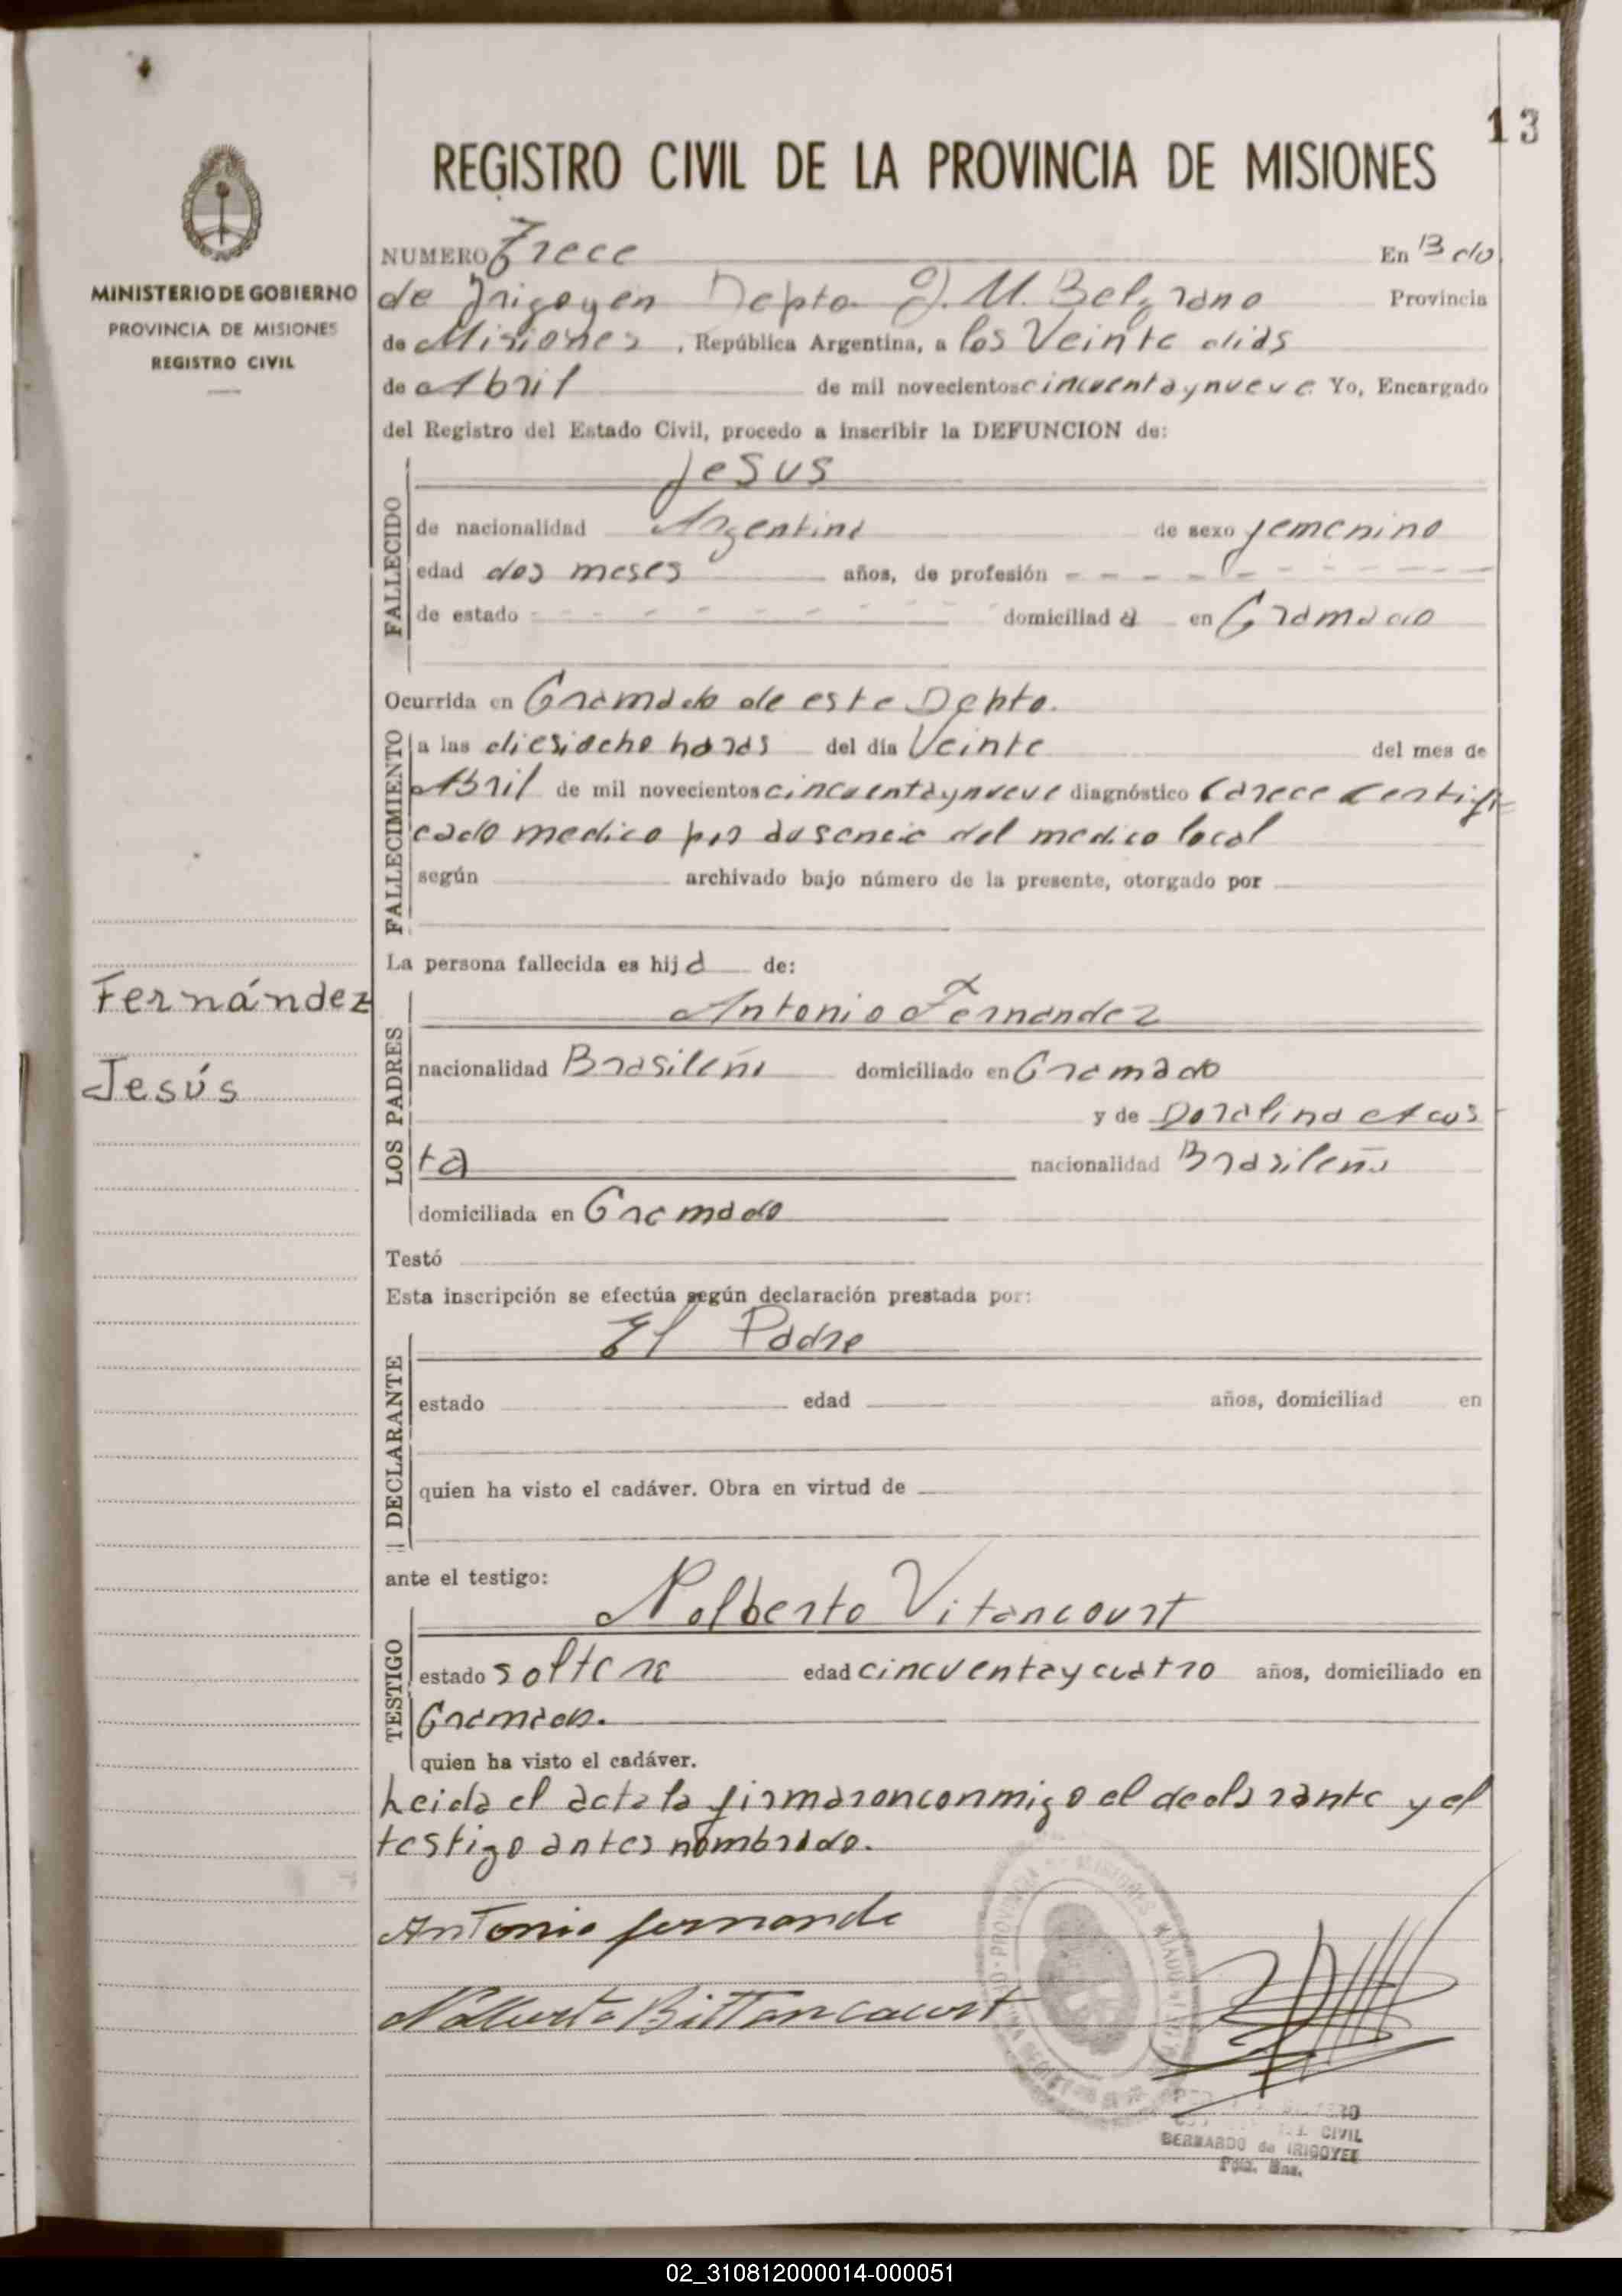 13
REGISTRO CIVIL DE LA PROVINCIA DE MISIONES
MINISTERIO DE GOBIERNO
PROVINCIA DE MISIONES
REGISTRO CIVIL
NUMERO Trece En Bdo
de Irigoyen Depto G. M. Belgrano Provincia
de Misiones, República Argentina, a los Veinte dias
de Abril de mil novecientos cincuentaynueve Yo, Encargado
del Registro del Estado Civil, procedo a inscribir la DEFUNCION de:
FALLECIDO
Jesus
de nacionalidad Argentina de sexo femenino
edad dos meses años, de profesión - - - - - - - - - -
de estado - - - - - - - - - domiciliad a en Gramado
Ocurrida en Gramado de este Depto.
FALLECIMIENTO
a las diesiocho horas del día Veinte del mes de
Abril de mil novecientos cincuentaynueve diagnóstico Carece Certifi-
cado medico por ausencia del medico local
según archivado bajo número de la presente, otorgado por
La persona fallecida es hij a de:
Fernández
Jesús
LOS PADRES
Antonio Fernandez
nacionalidad Brasileña domiciliado en Gramado
y de Doralina Acos
ta nacionalidad Brasileña
domiciliada en Gramado
Testó
Esta inscripción se efectúa según declaración prestada por:
DECLARANTE
El Padre
estado edad años, domiciliad en
quien ha visto el cadáver. Obra en virtud de
ante el testigo:
TESTIGO
Nolberto Vitancourt
estado soltero edad cincuentaycuatro años, domiciliado en
Gramado.
quien ha visto el cadáver.
Leida el acta la firmaronconmigo el declarante y el
testigo antes nombrado.
Antonio fernande
Nolberto Bittancourt
CIVIL
BERNARDO de IRIGOYEN
Pcia. Mns.
02_310812000014-000051